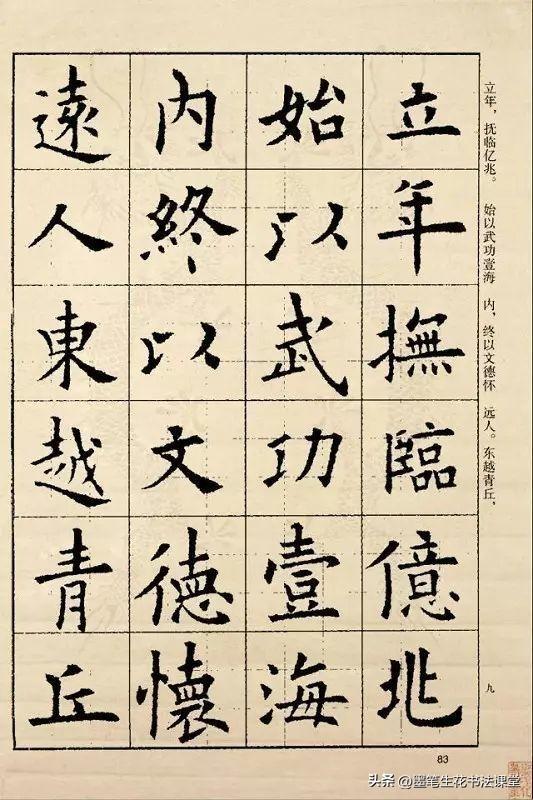 立年，抚临亿兆。 始以武功壹海 内，终以文德怀 远人。东越青丘，
九
立年撫臨億兆
始以武功壹海
内終以文德懷
遠人東越青丘
83
头条 @墨笔生花书法课堂